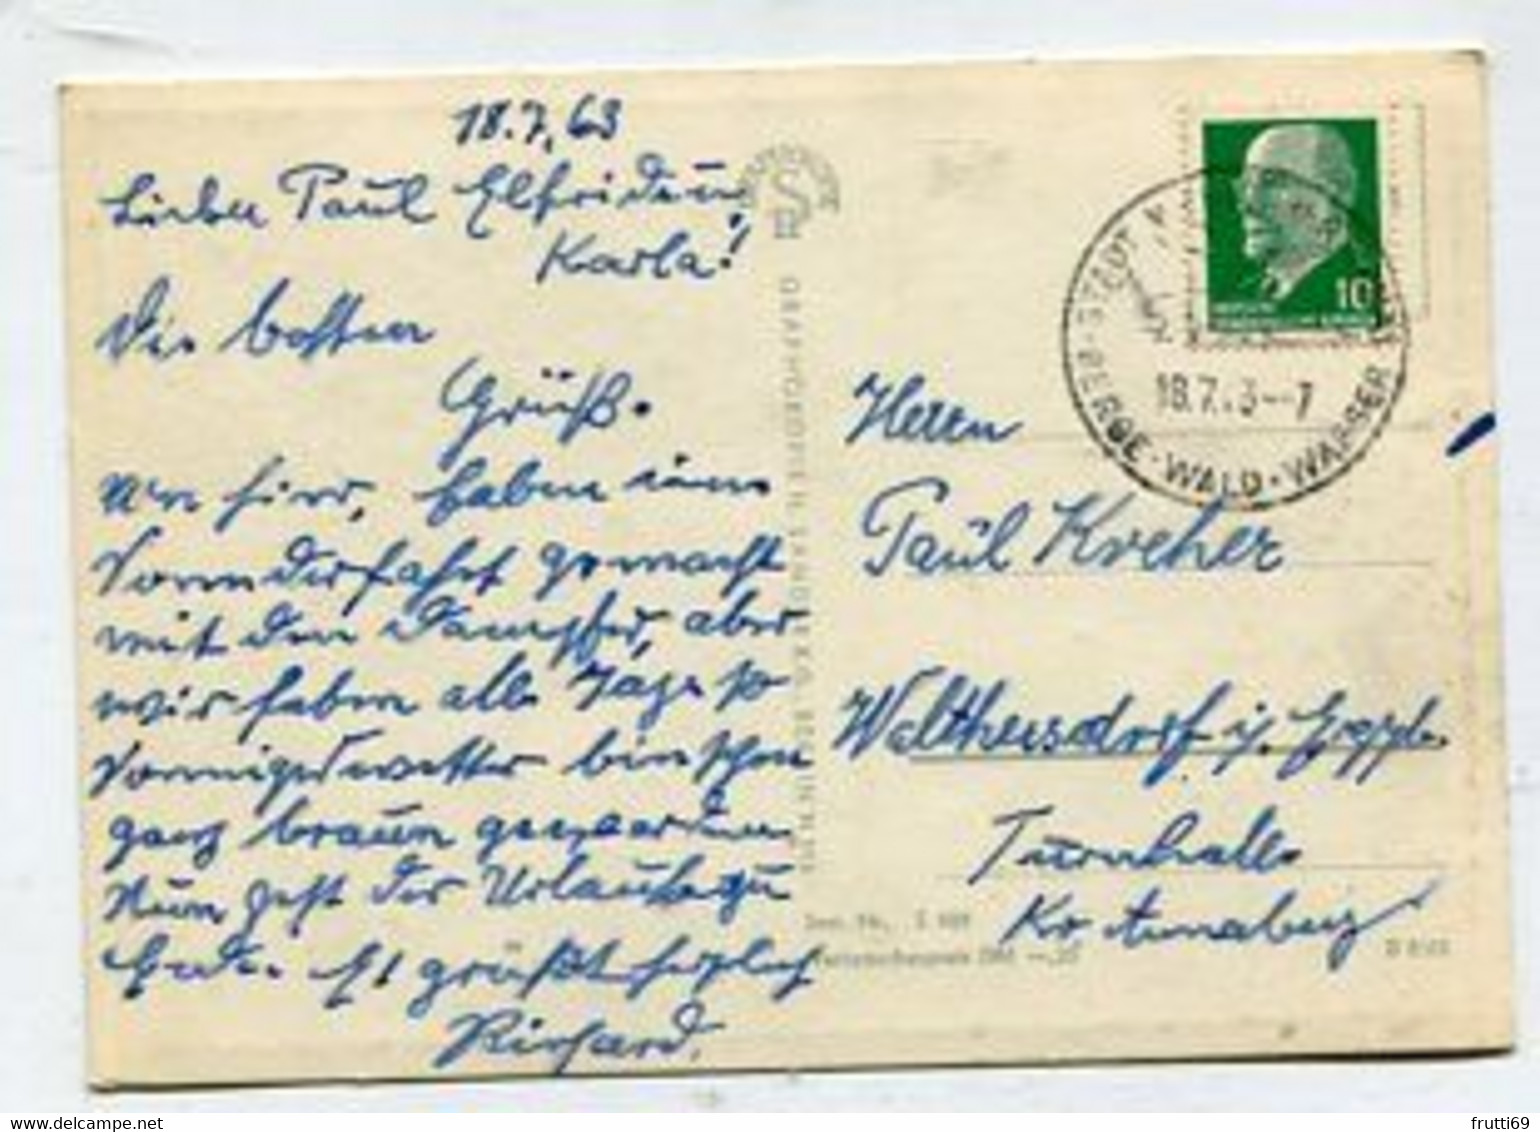 18.7.63
Lieber Paul Elfriedeu.
Karla!
Die besten
Grüß.
von hier, haben eine
Sonnderfahrt gemacht
mit den Dampfer, aber
wir haben alle Tage so
Sonnigeswetter bin schon
ganz braun geworden
Nun geht der Urlaubzu
Ende. Es grüßt herzlich
Richard.
STADT
BERGE · WALD · WASSER
18.7. 3--7
10
Herrn
Paul Kreher
Walthersdorf i/. Erzgb.
Turnhalle
Kr Annaberg
frutti69